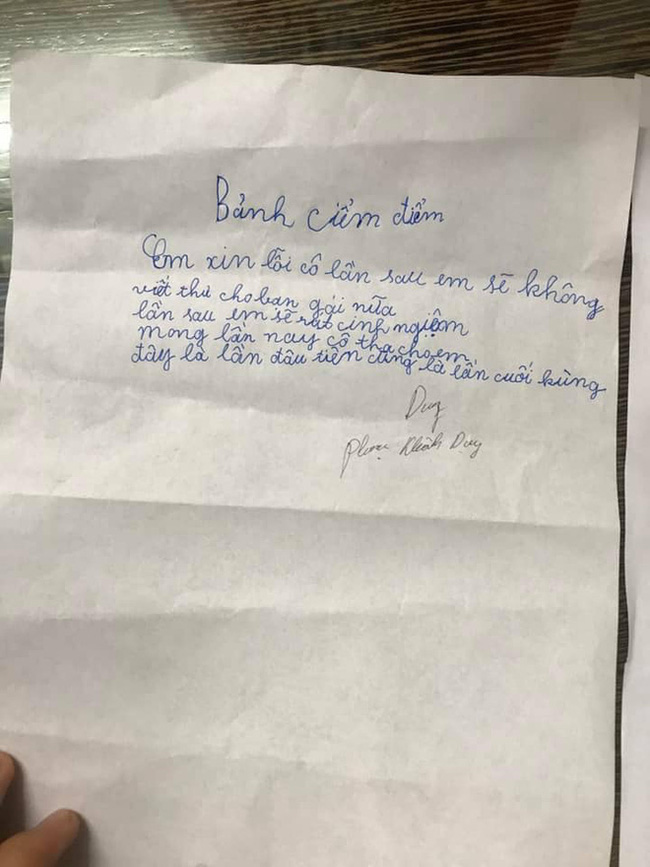 Bảnh ciểm điểm
Em xin lỗi cô lần sau em sẽ không
viết thư cho bạn gái nữa
lần sau em sẽ rút cinh ngiệm
mong lần nay cô tha cho em
đây la lần đâu tiên cũng là lần cuối kùng
Duy
Phạm Khánh Duy